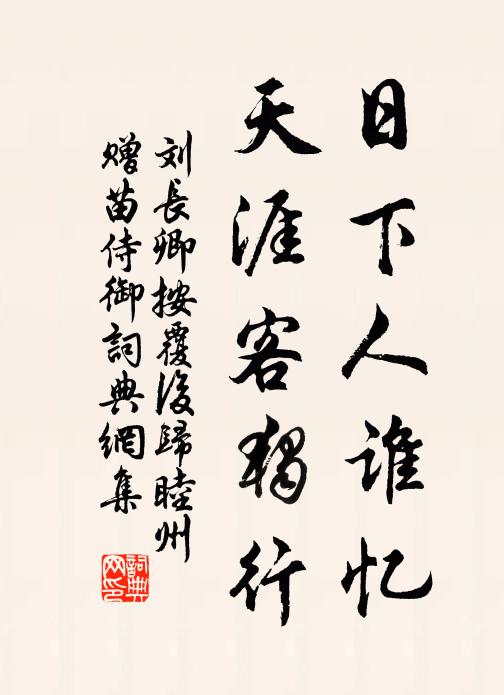 日下人谁忆
天涯客独行
刘長卿按覆後歸睦州
赠苗侍御詞典網集
詞典网印